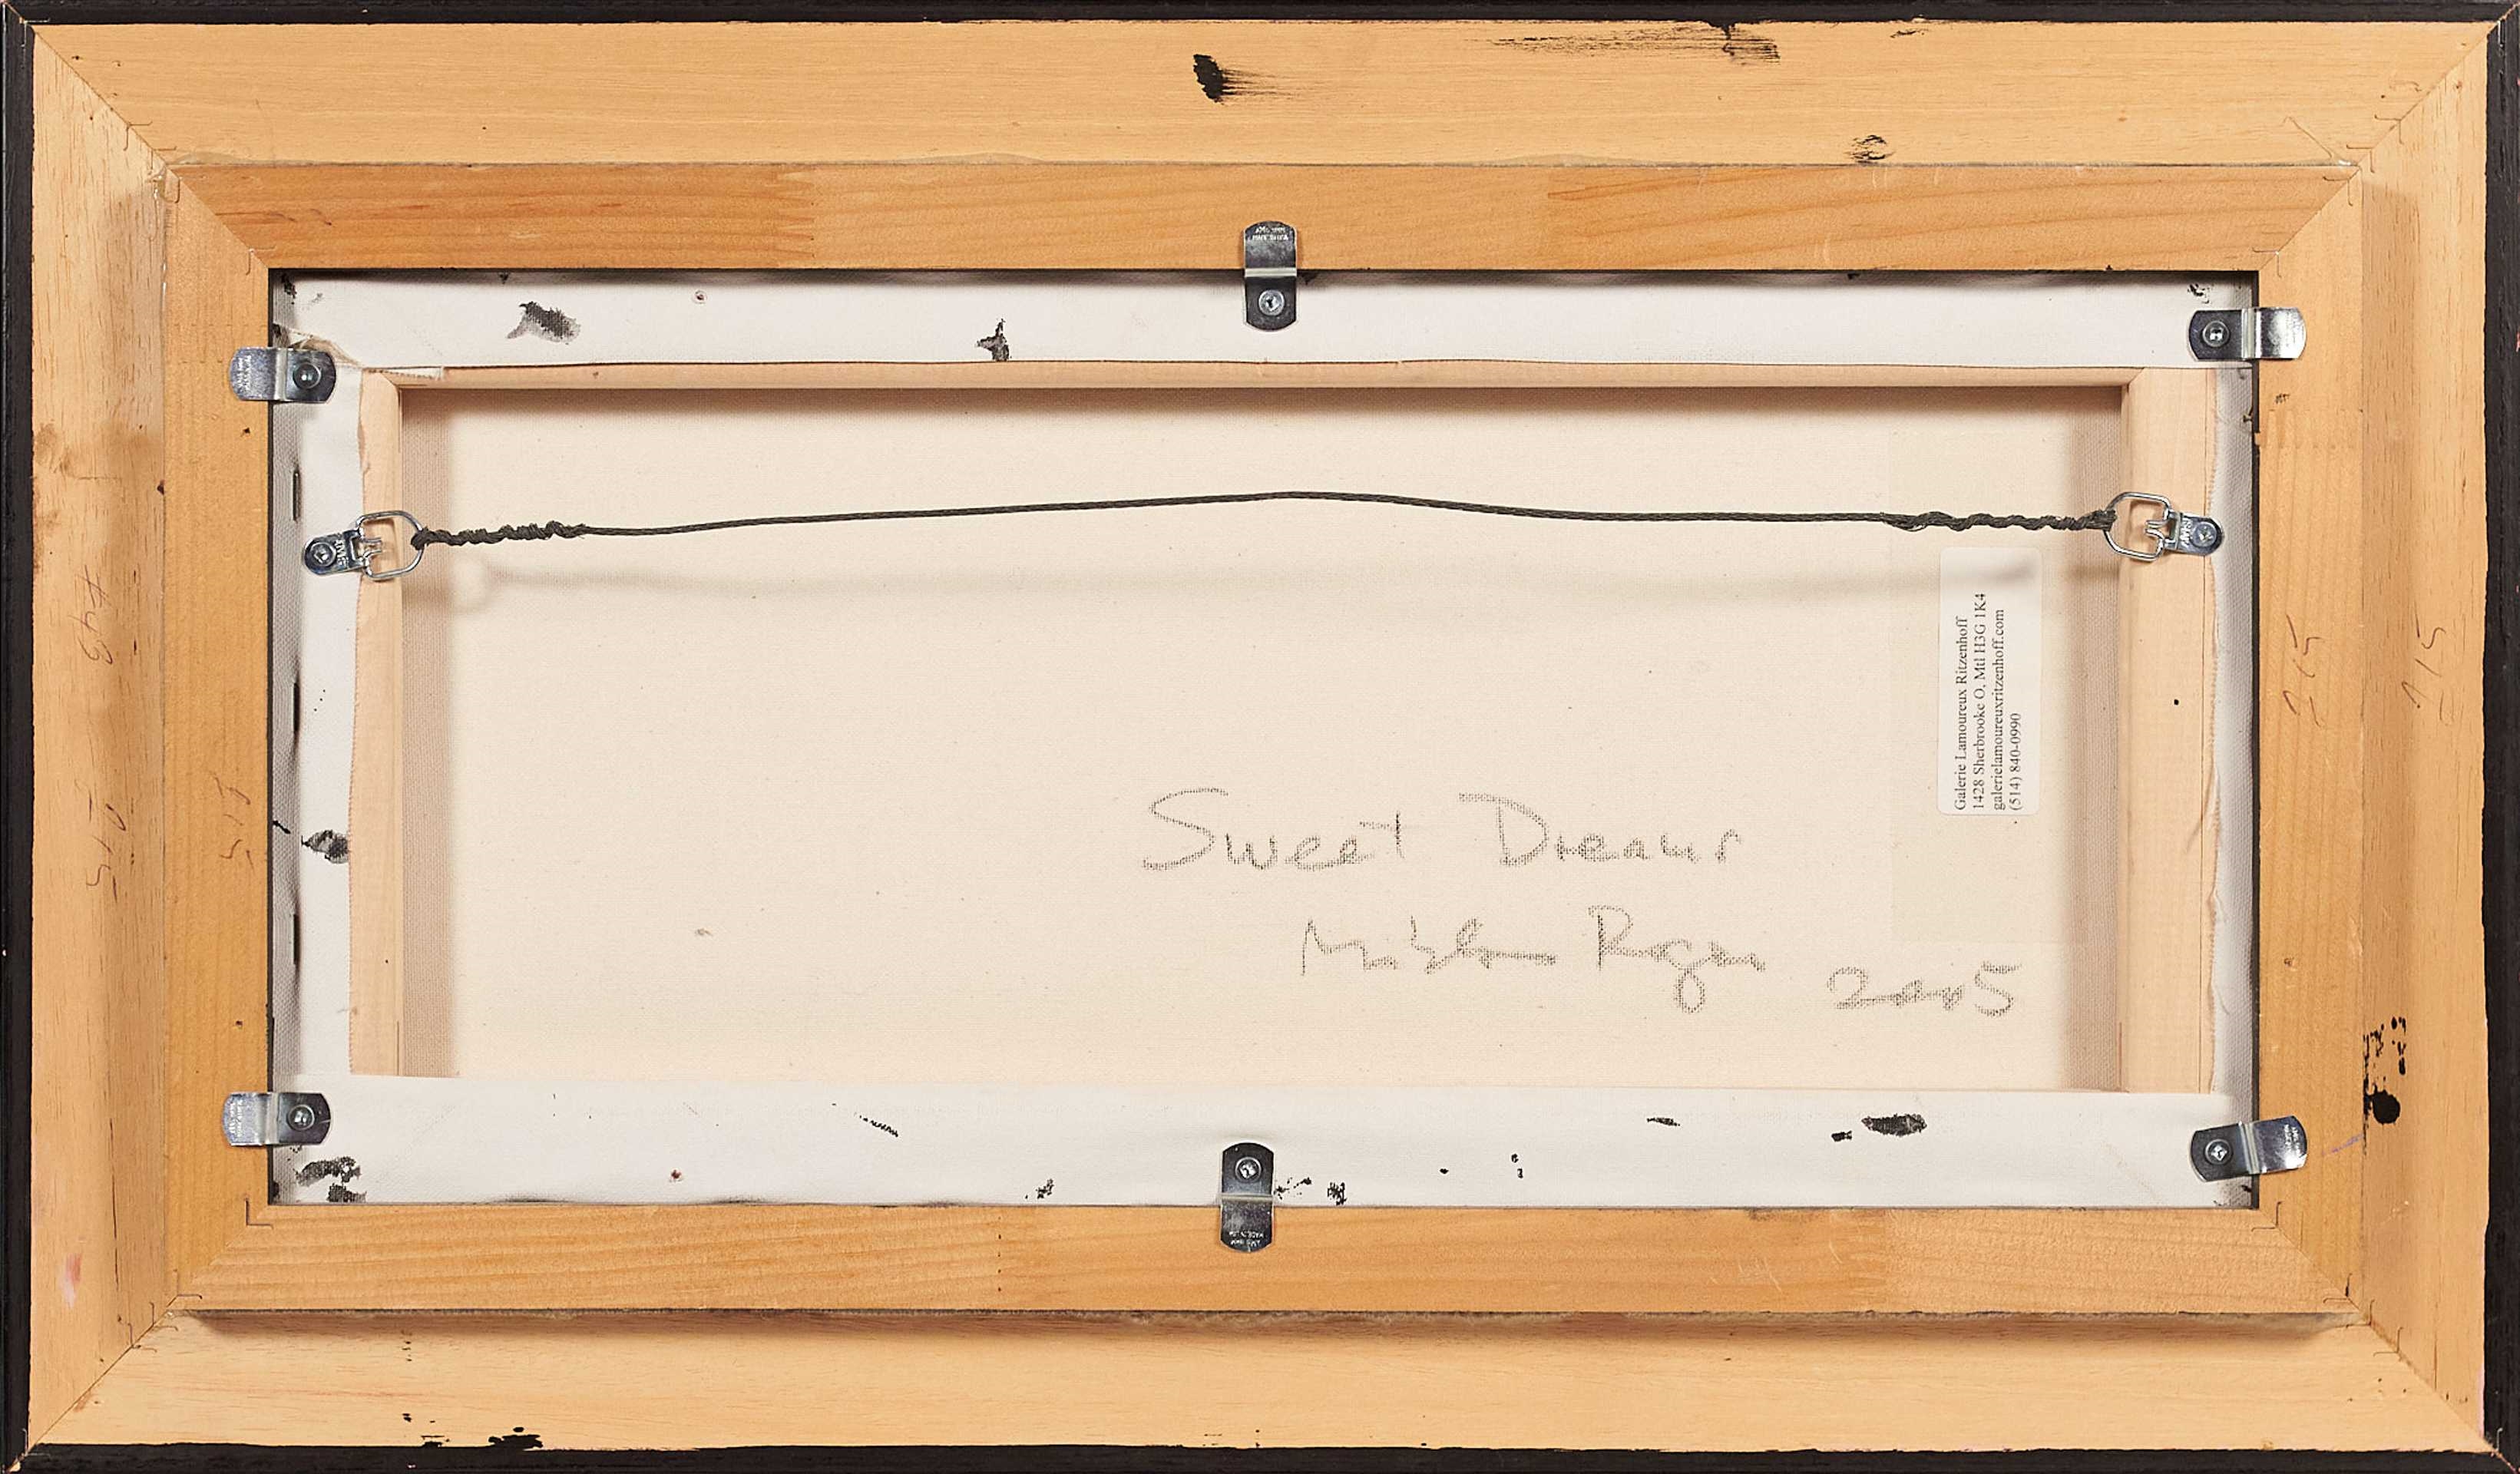 Galerie Lamoureux Ritzenhoff
1428 Sherbrooke O, Mtl H3G 1K4
galerielamoureuxritzenhoff.com
(514) 840-0990
Sweet Dreams
2005
215
215
215
215